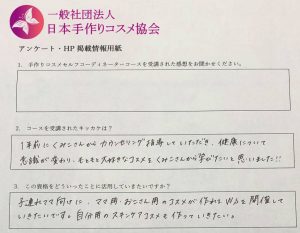 一般社団法人
日本手作りコスメ協会
アンケート・HP 掲載情報用紙
1. 手作りコスメセルフコーディネーターコースを受講された感想をお聞かせください。
2. コースを受講されたキッカケは？
1年前にくみこさんからカウンセリング指導していただき、健康について
意識が変わり、もともと大好きなコスメをくみこさんから学びたいと思いました!!
3. この資格をどういったことに活用していきたいですか？
子連れママ向けに、ママ用・お子さん用のコスメが作れるWSを開催して
いきたいです。自分用のスキンケアコスメも作っていきたい。